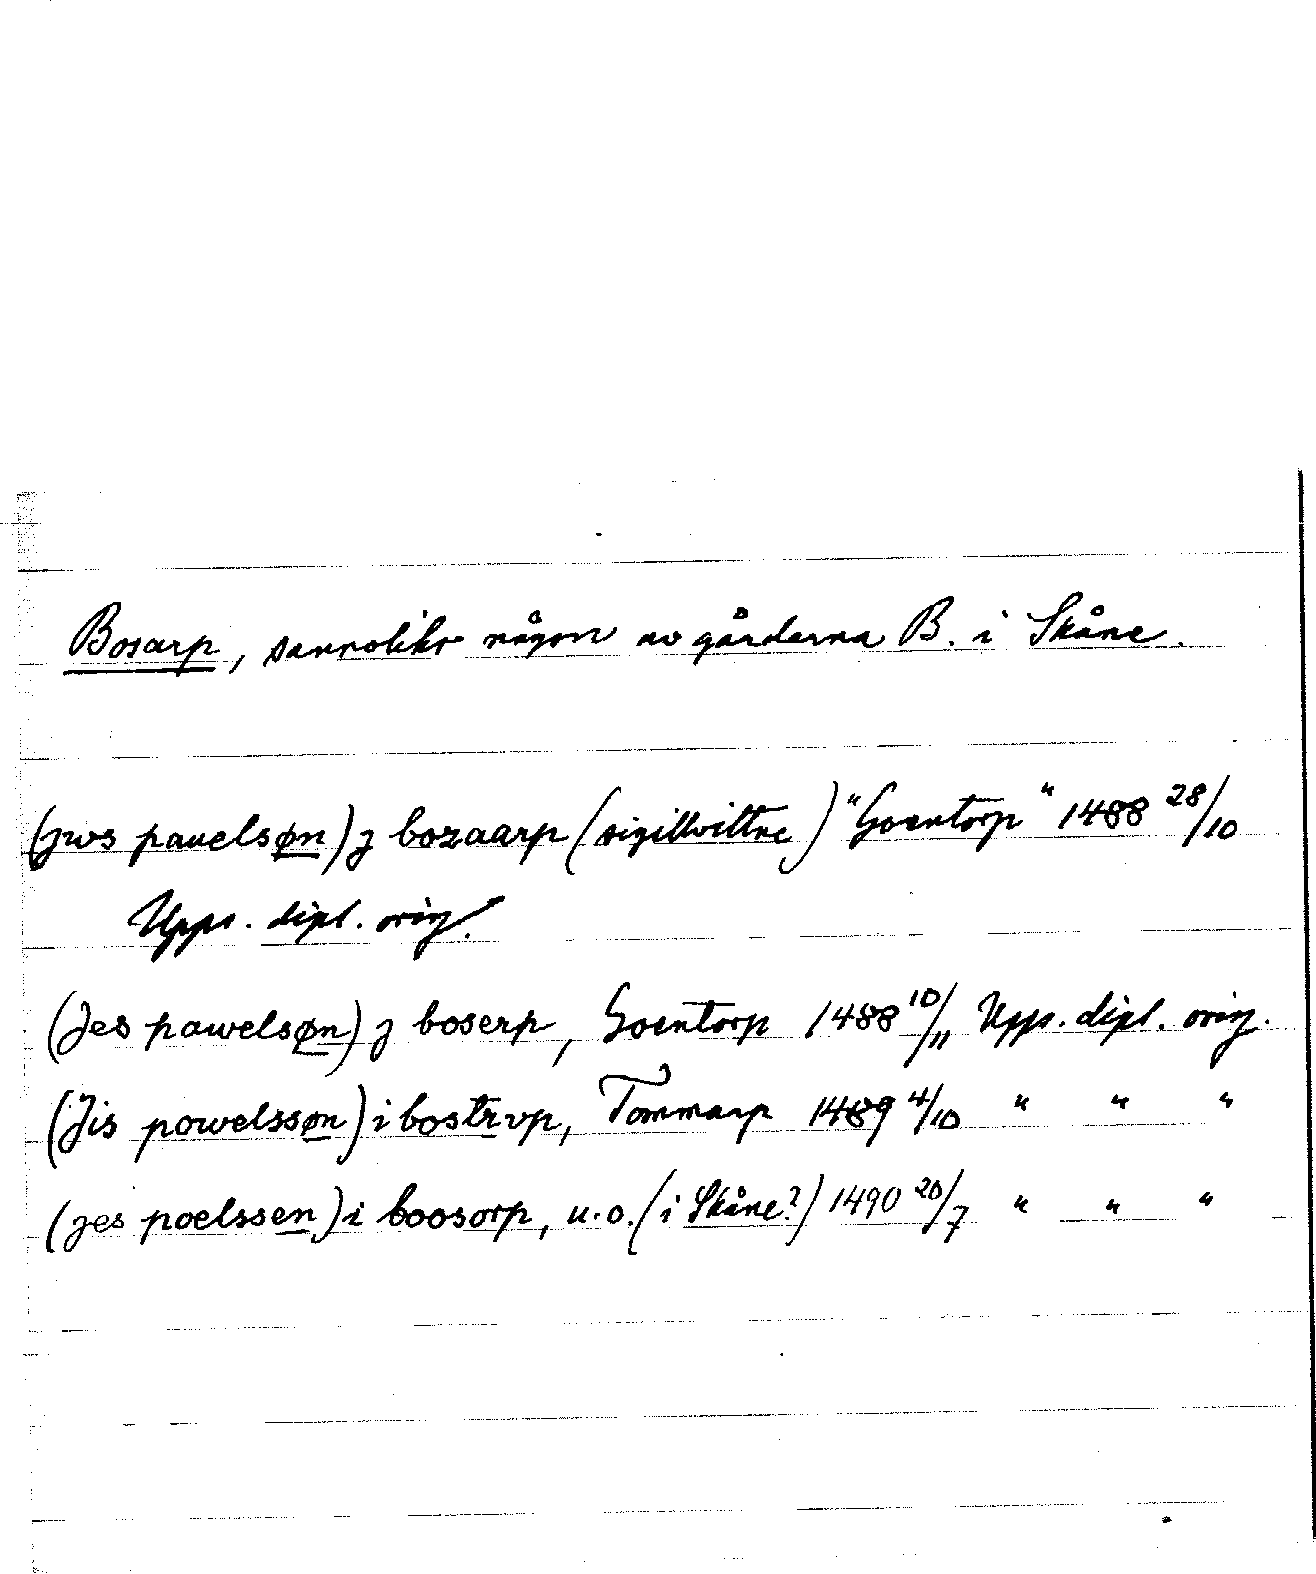 Bosarp, sannolikt någon av gårdarna B. i Skåne.
(jws pauelsøn) j bozaarp (sigillvittne) "Goentorp" 1488 28/10
Upps. dipl. orig.
(Jes pawelsøn) j boserp, Goentorp 1488 10/11 Upps. dipl. orig.
(Jis powelssøn) i bostrvp, Tommarp 1489 4/10 " " "
(jes poelssen) i boosorp, u.o. (i Skåne?) 1490 20/7 " " "